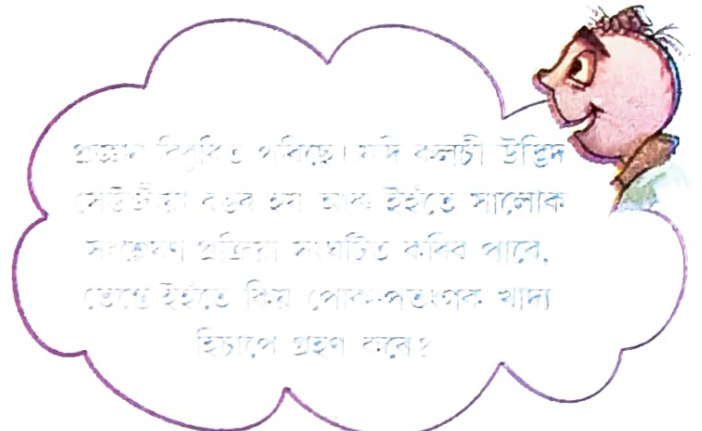 প্ৰজ্ঞান বিবুধিত পৰিছে। যদি কলচী উদ্ভিদ
সেউজীয়া ৰঙৰ হয় আৰু ইহঁতে সালোক
সংশ্লেষণ প্ৰক্ৰিয়া সংঘটিত কৰিব পাৰে,
তেন্তে ইহঁতে কিয় পোক-পতংগক খাদ্য
হিচাপে গ্ৰহণ কৰে?